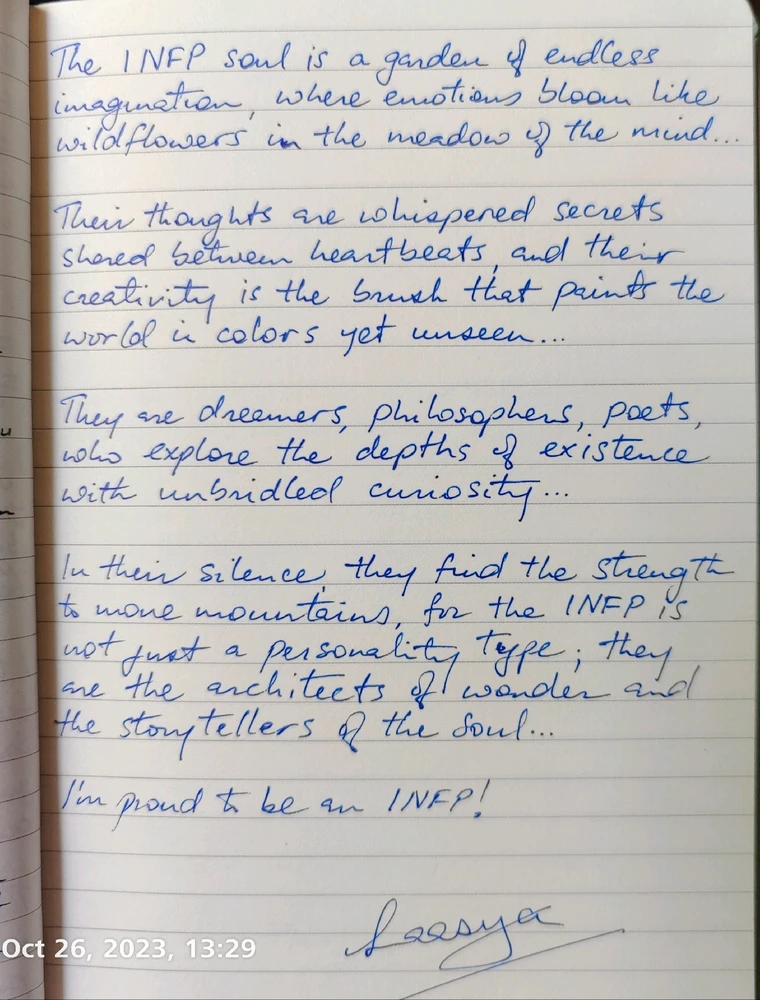 The INFP soul is a garden of endless
imagination, where emotions bloom like
wildflowers in the meadow of the mind...
Their thoughts are whispered secrets
shared between heartbeats, and their
creativity is the brush that paints the
world in colors yet unseen...
They are dreamers, philosophers, poets,
who explore the depths of existence
with unbridled curiosity...
In their silence, they find the strength
to move mountains, for the INFP is
not just a personality type; they
are the architects of wonder and
the storytellers of the soul...
I'm proud to be an INFP!
Laasya
Oct 26, 2023, 13:29